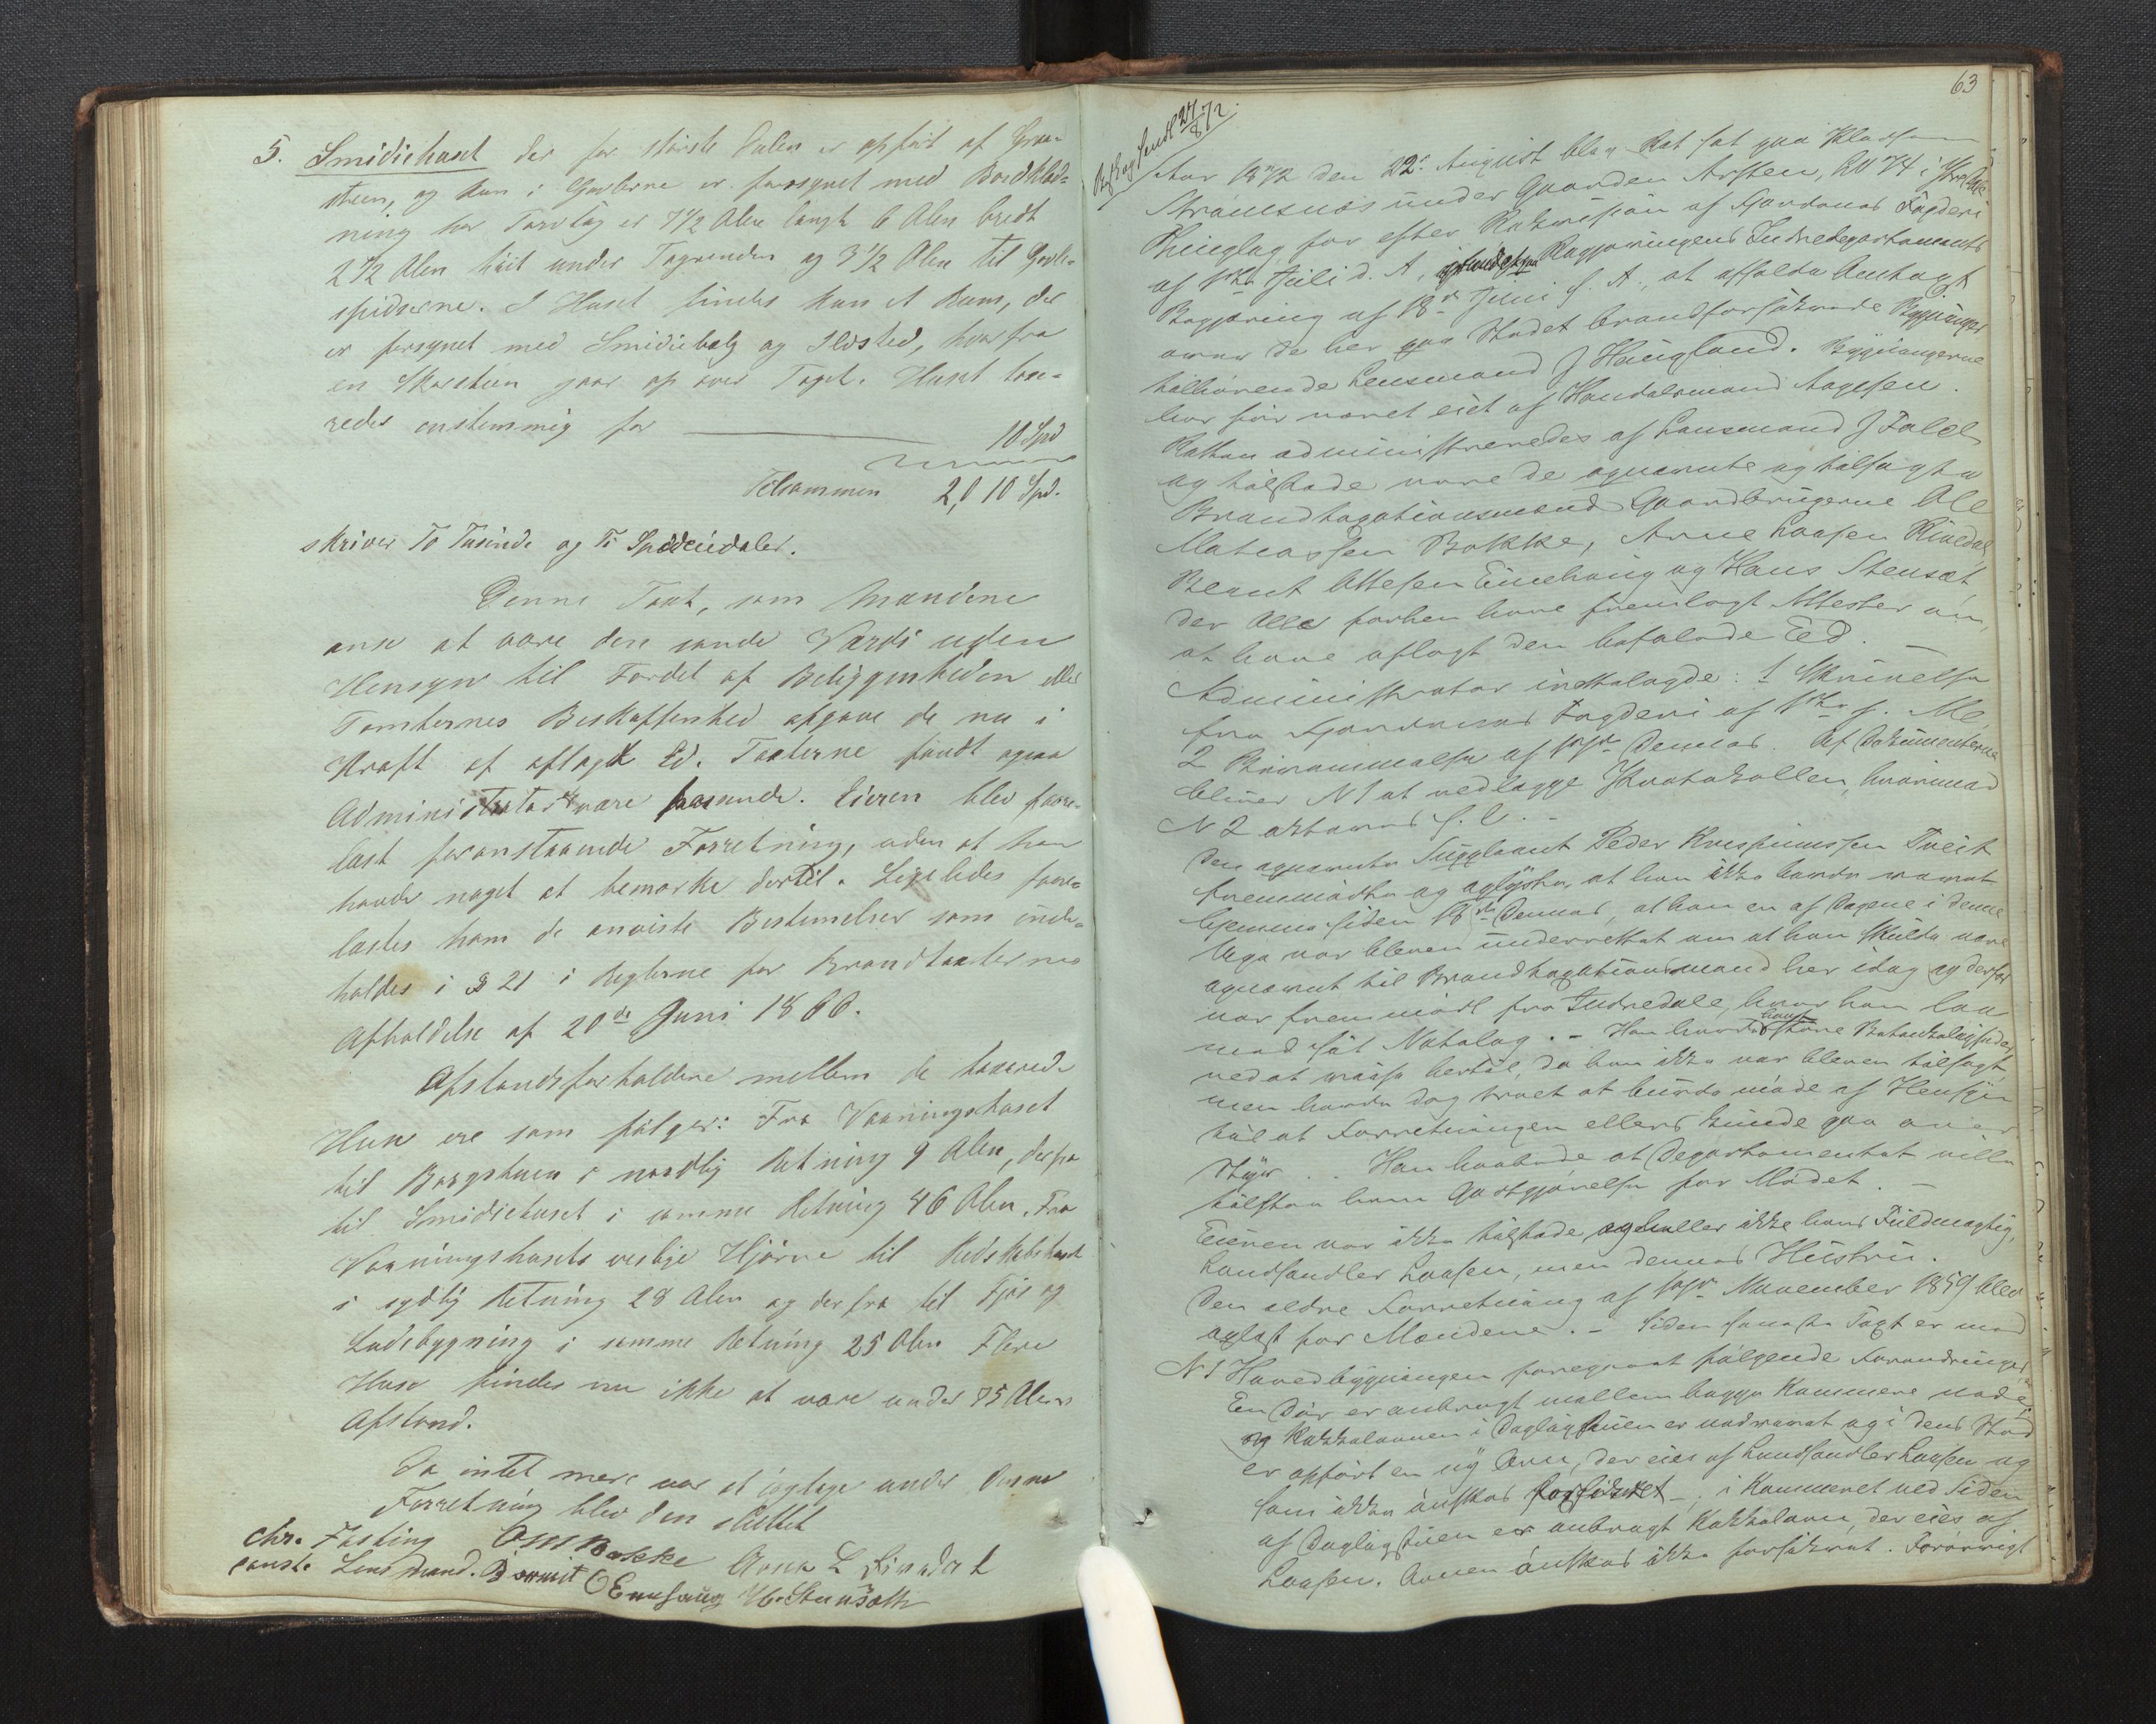 5. Smidiehuset der for störste Delen er opfört af Graa-
steen, og kun i Gavlerne er forsynet med Bordklæd-
ning har Torvtag er 7 1/2 Alen langt 6 Alen bredt
2 1/2 Alen höit under Tagrenden og 3 1/2 Alen til Gavle-
spidserne. I Huset findes kun et Rum, der
er forsynet med Smidiebælg og Ildsted, hvorfra
en Skorsteen gaar op over Taget. Huset taxe-
redes enstemmig for 10 Spd
Tilsammen 2,010 Spd.
skriver To Tusinde og Ti Speciedaler.
Denne Taxt, som Mændene
anse at være den sande Værdi uden
Hensyn til Fordel af Beliggenheden eller
Tomternes Beskaffenhed afgave de nu i
Kraft af aflagt Ed. Taxterne fandt ogsaa
Administrator at være passende. Eieren blev fore-
læst foranstaaende Forretning, uden at han
havde noget at bemærke dertil. Ligeledes fore-
læstes ham de anviste Bestemelser som inde-
holdes i § 21 i Reglerne for Brandtaxternes
Afholdelse af 20de Juni 1860.
Afstandsforholdene mellem de taxerede
Huse ere som fölger: Fra Vaaningshuset
til Borgstuen i nordlig Retning 9 Alen, derfra
til Smidiehuset i samme Retning 46 Alen. Fra
Vaaningshusets vestlige Hjörne til Redskabshuset
i sydlig Retning 28 Alen og derfra til Fjös og
Ladebygning i samme Retning 25 Alen Flere
Huse findes nu ikke at være under 75 Alens
Afstand.
Da intet mere var at iagtage under denne
Forretning blev den sluttet
Chr. Fasting OMBakke Arne L Rivedal
const. Lensmand. Bernt OEinehaug H. Stensæth
63
27/8 72.
Aar 1872 den 22de August blev Ret sat paa Pladsen
Strømsnæs under Gaarden Arsten, LN 74 i Ytre Dale
Thinglag for efter Rekvisition af Fjordenes Fogderi
af 1ste Juli d. A., grundet paa Regjeringens Indredepartements
Begjæring af 18de Juni s. A., at afholde Omtaxt
over de her paa Stedet brandforsikrede Bygninger
tilhørende Lensmand J Haugland. Bygningerne
har før været eiet af Handelsmand Aagesen.
Retten administreredes af Lensmand J Falch
og tilstede vare de opnævnte og tilsagte
Brandtaxationsmænd Gaardbrugerne Ole
Mathiassen Bakke, Arne Laasen Rivedal,
Bernt Ottesen Einehaug og Hans Stensæt
der Alle forhen have fremlagt Attester om,
at have aflagt den befalede Eed.
Administrator indtalagde: 1 Skrivelse
fra Fjordenes Fogderi af 1ste f. M.
2 Berammelse af dennes. Af Dokumenterne
bliver N 1 at vedlægge Protokollen, hvorimod
N 2
Den opnævnte Suppleant Peder Krispinussen Tveit
fremmødte og oplyste, at han ikke havde været
hjemme siden 18de dennes, at han en af Dagene i denne
Uge var bleven underrettet om at han skulde være
opnævnt til Brandtaxationsmand her idag og derfor
var fremmødt fra Indredale, hvor han laa
med sit Notelag. - Han havde havt store
ved at reise hertil, da han ikke var bleven tilsagt,
men havde dog troet at burde møde af Hensyn
til at Forretningen ellers kunde gaa over
Styr. Han haabede at Departementet vilde
tilstaa ham Godtgjørelse for Mødet.
Eieren var ikke tilstede, og heller ikke hans Fuldmægtig,
Landhandler Laasen, men dennes Hustru.
Den ældre Forretning af November 1859 blev
oplæst for Mændene. - Siden seneste Taxt er med
N 1 Hovedbygningen foregaaet følgende Forandringer,
En Dør er anbragt mellem begge Kammere nede,
og Kakkelovnen i Dagligstuen er nedrevet og i dens Sted
er opført en ny Ovn, der eies af Landhandler Laasen og
som ikke ønskes forsikret -; i Kammeret ved Siden
af Dagligstuen er anbragt Kakkelovn, der eies af
Laasen. Ovnen ønskes ikke forsikret. Forøvrigt